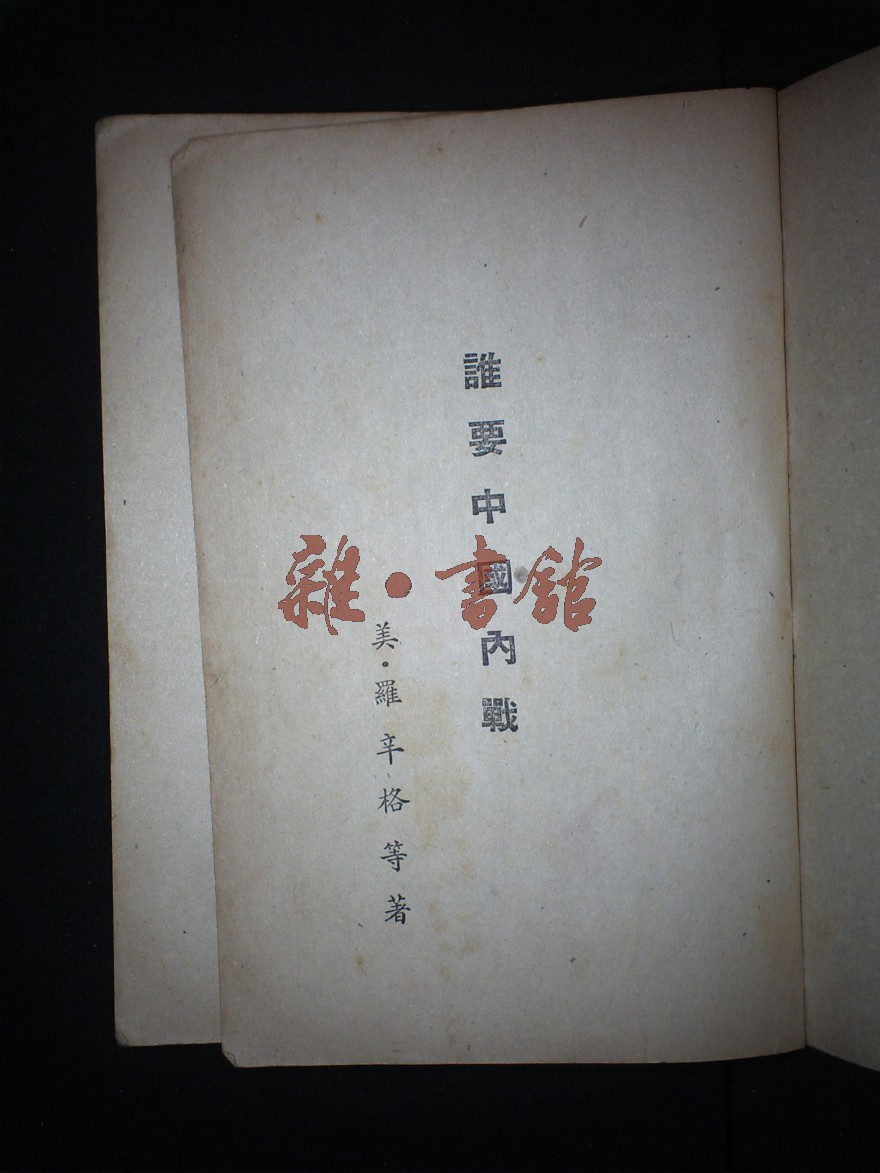 誰要中國內戰
美·羅辛格等著
雜·書館